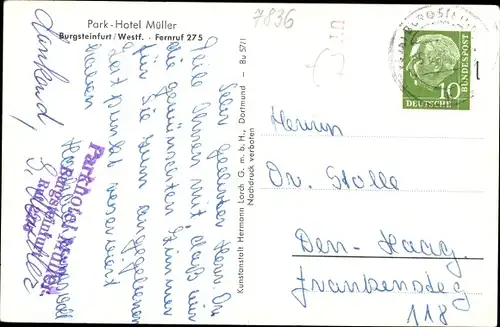 Park-Hotel Müller
Burgsteinfurt / Westf. · Fernruf 275
7836
Sehr geehrter Herr Dr.
Teile Ihnen mit, daß wir
die gewünschten Zimmer
für Sie zum angegebenen
Zeitpunkt reserviert
haben.
dankend,
Parkhotel Müller
Burgsteinfurt
Kunstanstalt Hermann Lorch G.m.b.H., Dortmund - Bu 57/1
Nachdruck verboten
DEUTSCHE
BUNDESPOST
10
Herrn
Dr. Stolle
Den-Haag.
Frankensteg
118